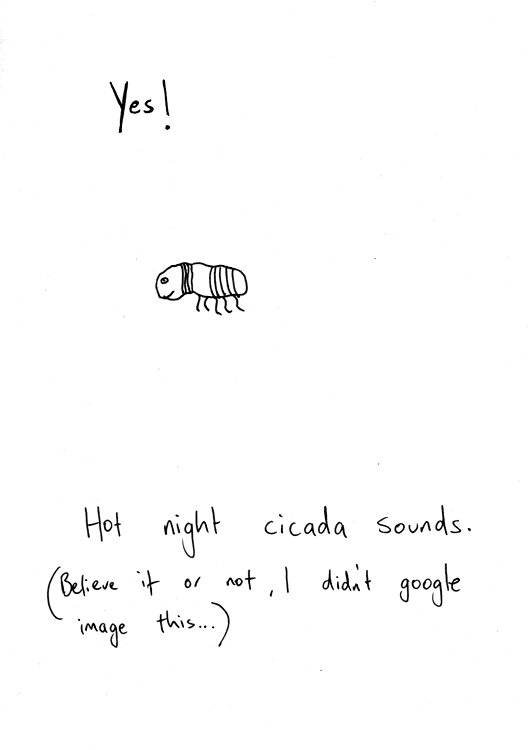 Yes!
Hot night cicada sounds.
(Believe it or not, I didn't google
image this...)